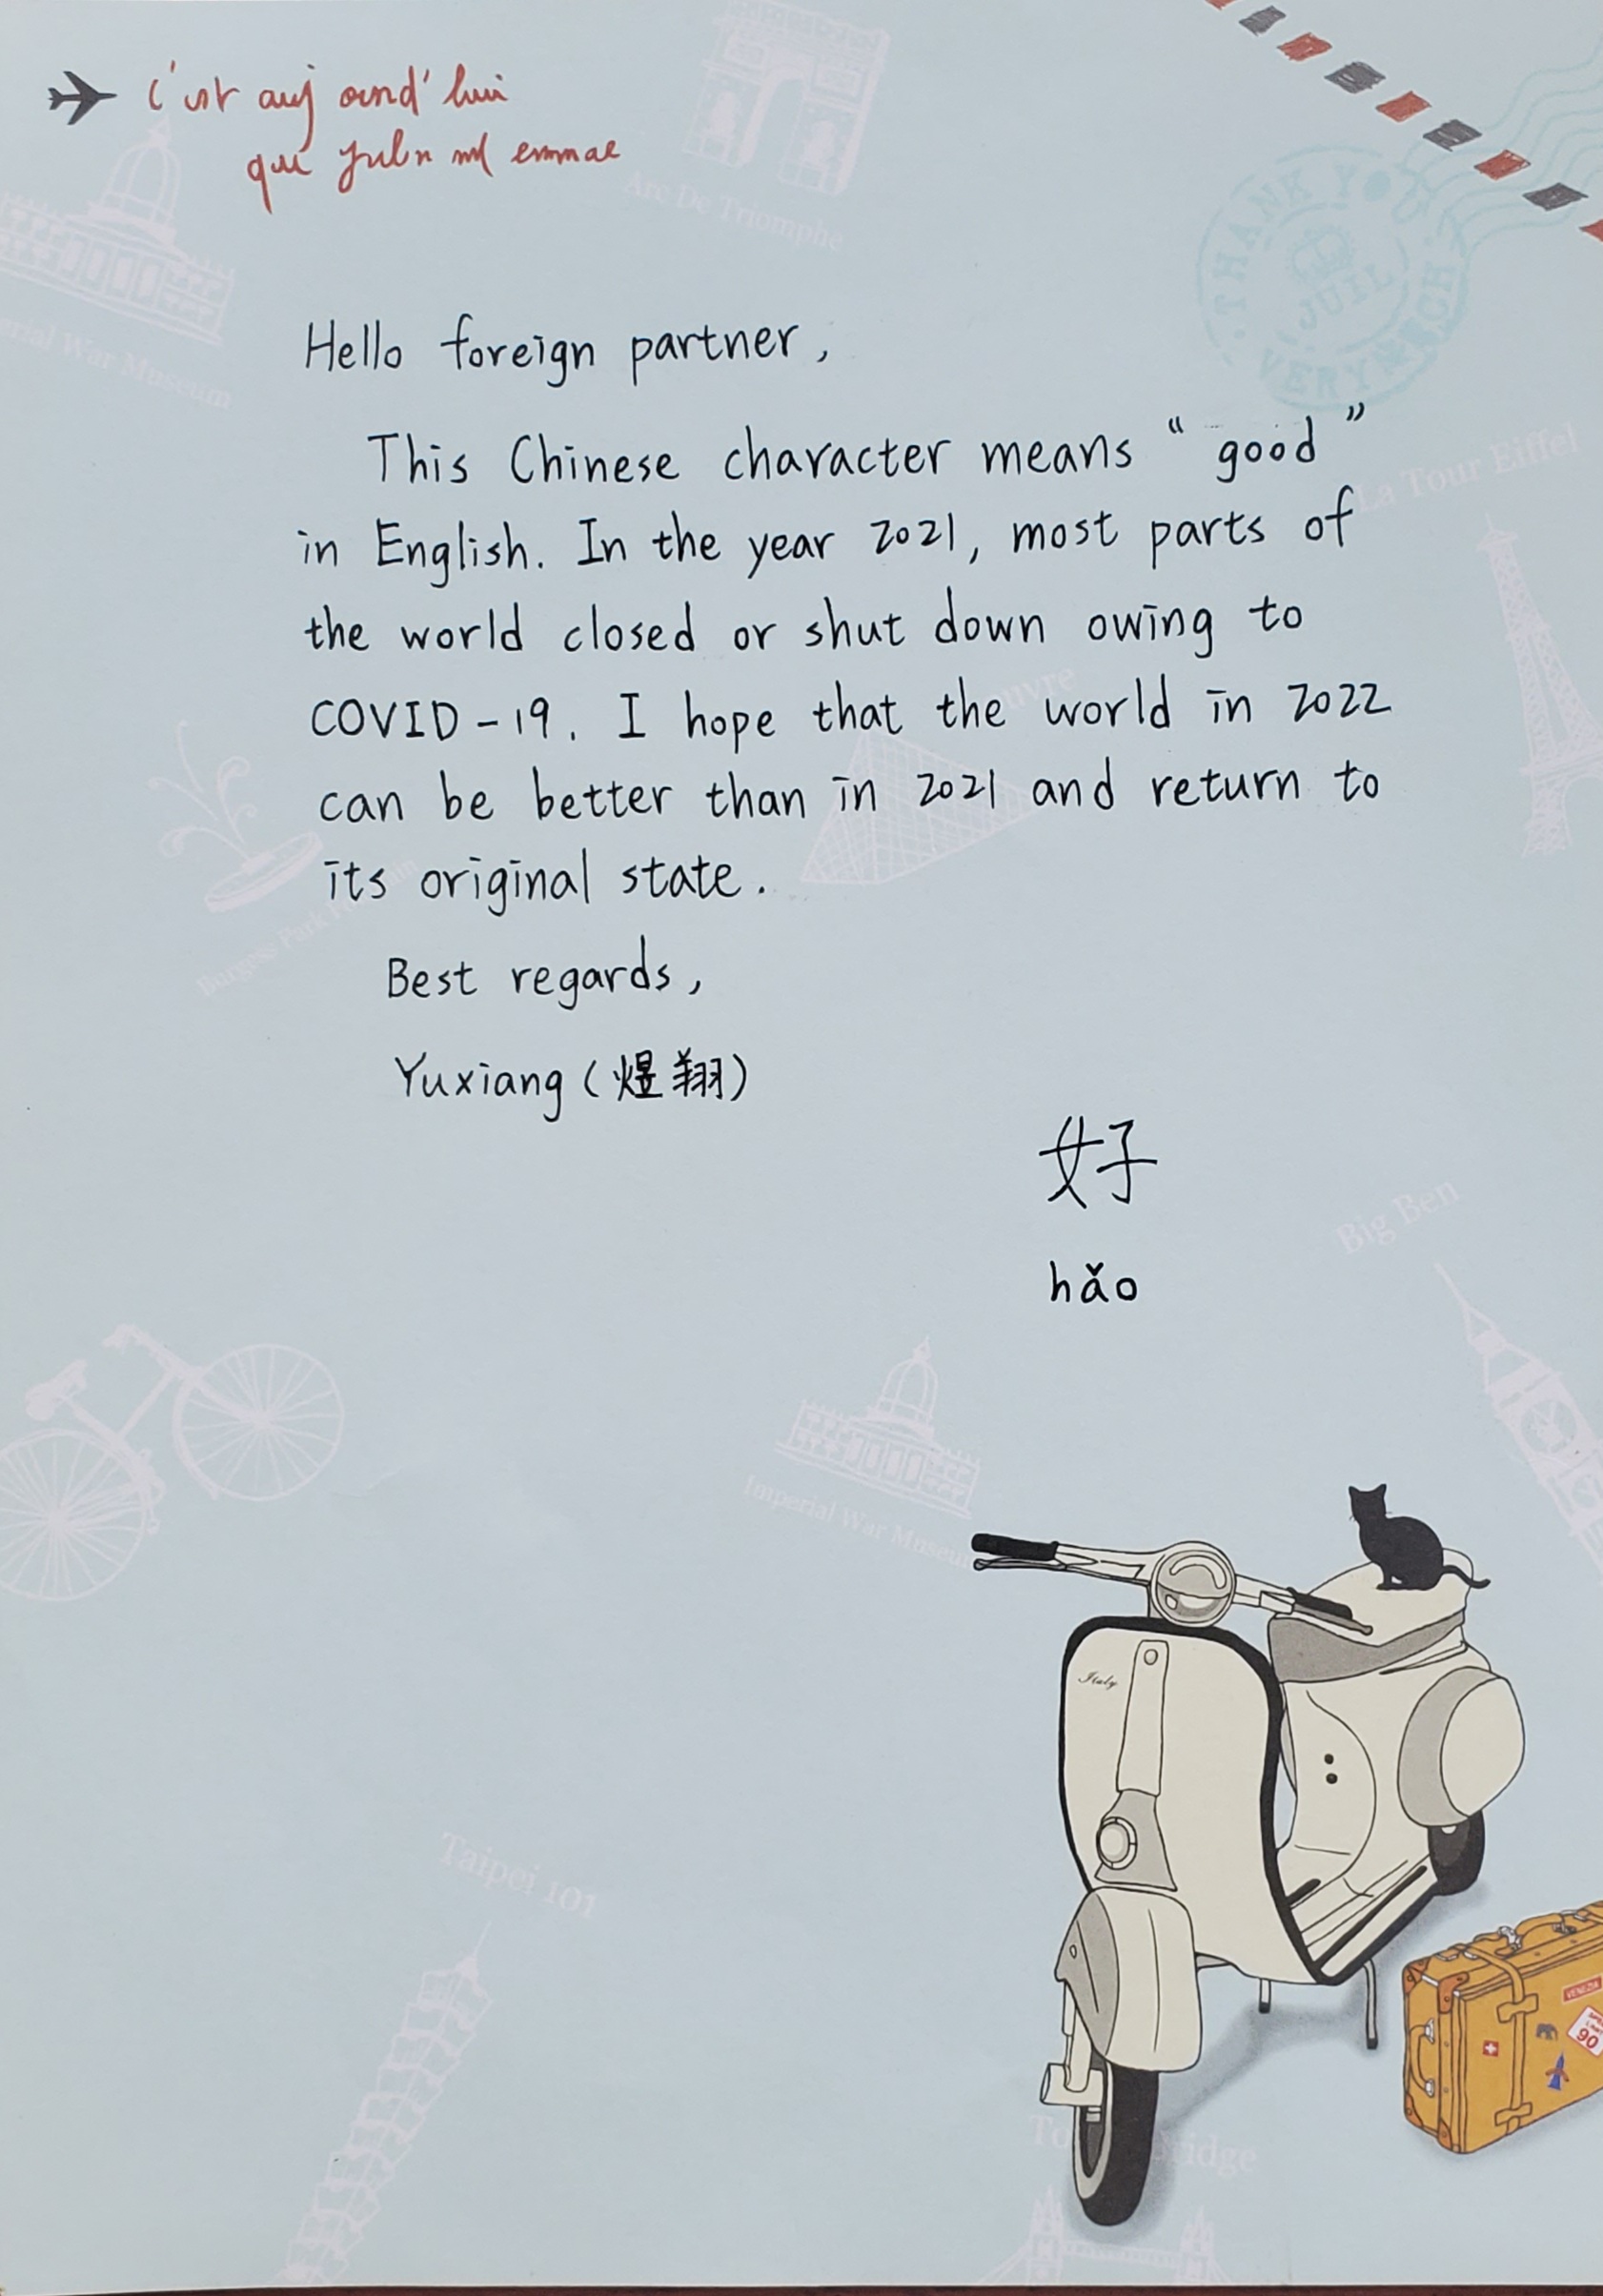 c'est aujourd'hui
que
Arc De Triomphe
THANK YOU
VERY MUCH
JUIL
Imperial War Museum
Hello foreign partner,
This Chinese character means “good”
in English. In the year 2021, most parts of
the world closed or shut down owing to
COVID-19. I hope that the world in 2022
can be better than in 2021 and return to
its original state.
Best regards,
Yuxiang (煜翔)
好
hǎo
La Tour Eiffel
Burgess Park
Big Ben
Imperial War Museum
Italy
Taipei 101
VENEZIA
90